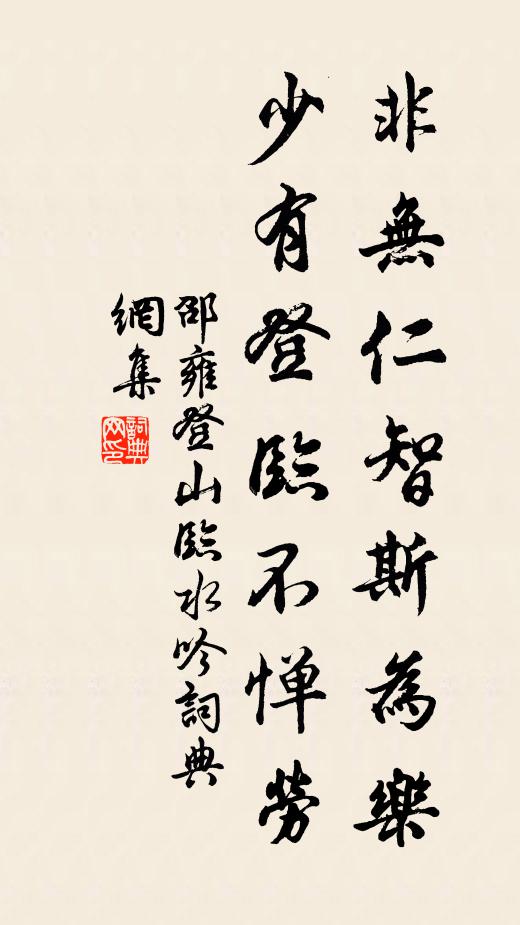 非無仁智斯為樂
少有登臨不憚勞
邵雍登山臨水吟詞典
網集
詞典
网印